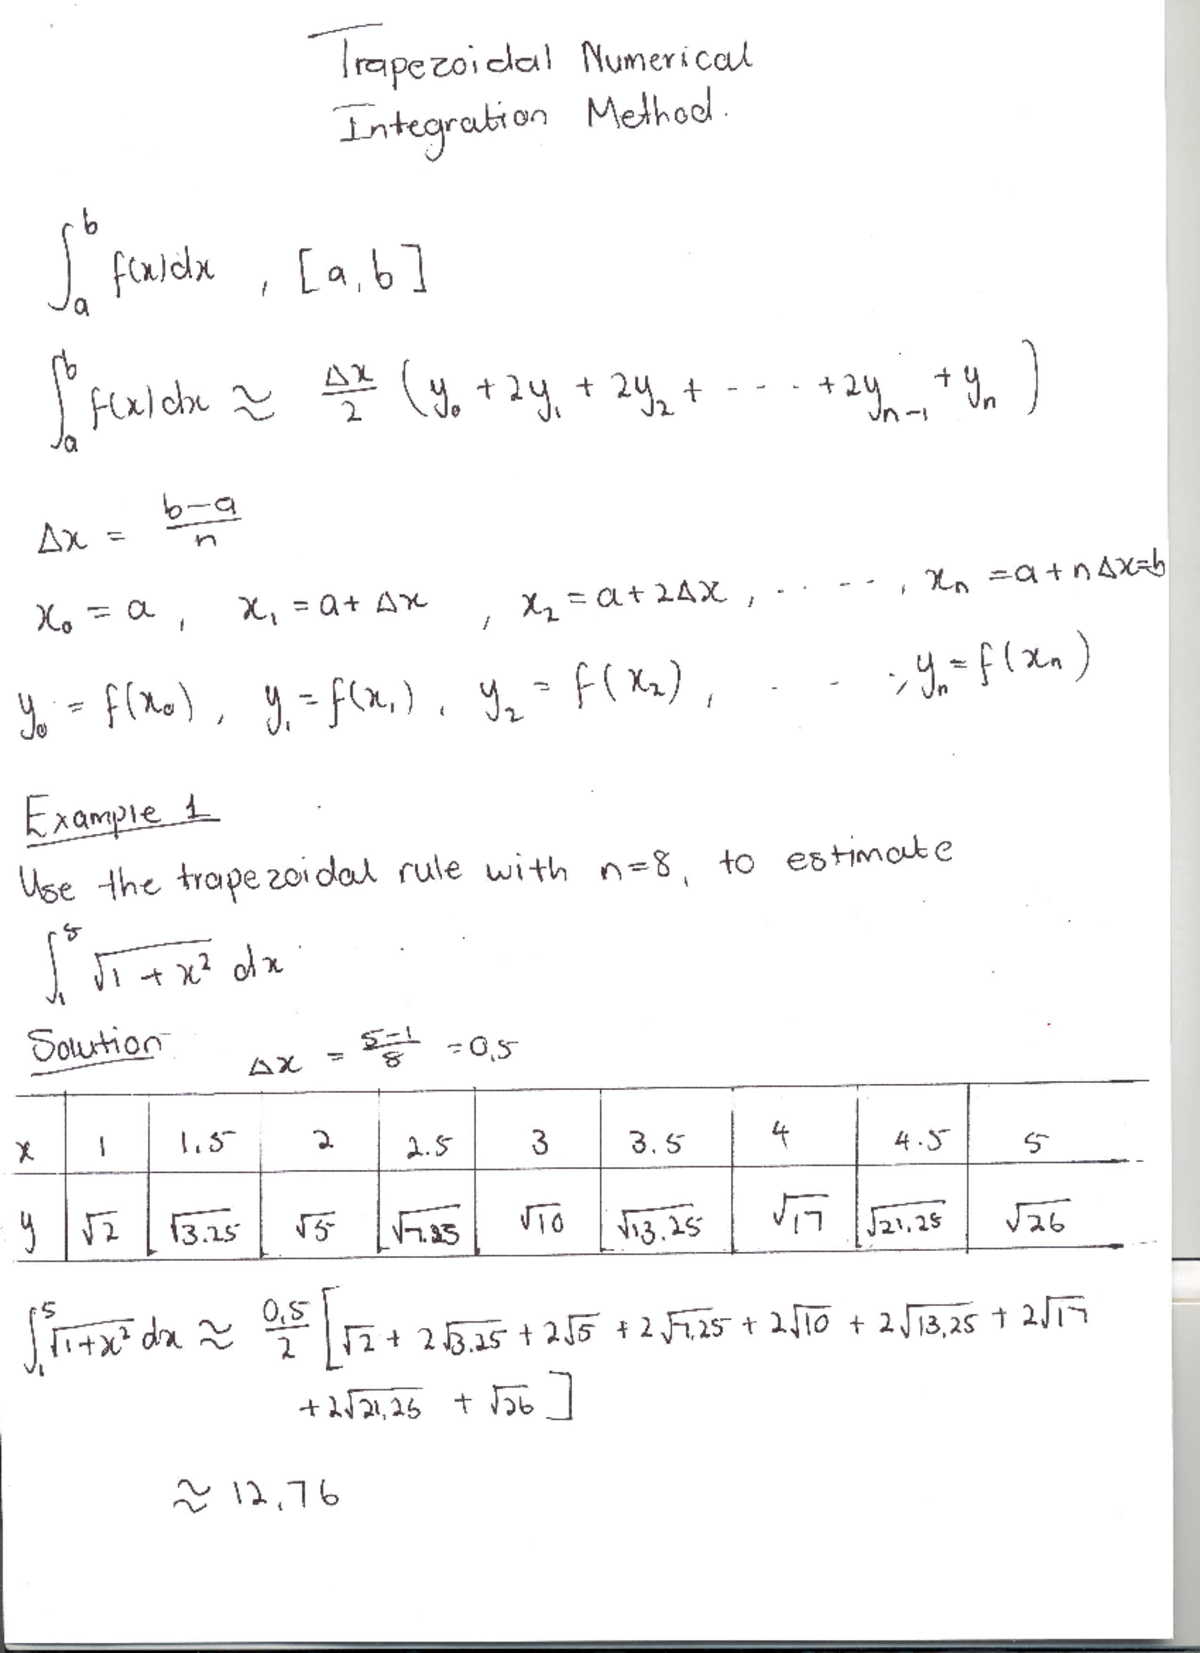 Trapezoidal Numerical
Integration Method.
∫_a^b f(x)dx , [a,b]
∫_a^b f(x)dx ≈ Δx/2 (y₀ + 2y₁ + 2y₂ + - - - - + 2y_{n-1} + y_n)
Δx = (b-a)/n
x₀ = a , x₁ = a + Δx , x₂ = a + 2Δx , - - - - , x_n = a + nΔx = b
y₀ = f(x₀) , y₁ = f(x₁) , y₂ = f(x₂) , - - - , y_n = f(x_n)
Example 1
Use the trapezoidal rule with n=8, to estimate
∫_1^5 √(1 + x²) dx
Solution Δx = (5-1)/8 = 0,5
x 1 1.5 2 2.5 3 3.5 4 4.5 5
y √2 √3.25 √5 √7.25 √10 √13.25 √17 √21,25 √26
∫_1^5 √(1+x²) dx ≈ 0,5/2 [√2 + 2√3.25 + 2√5 + 2√7,25 + 2√10 + 2√13,25 + 2√17
+ 2√21,25 + √26 ]
≈ 12,76